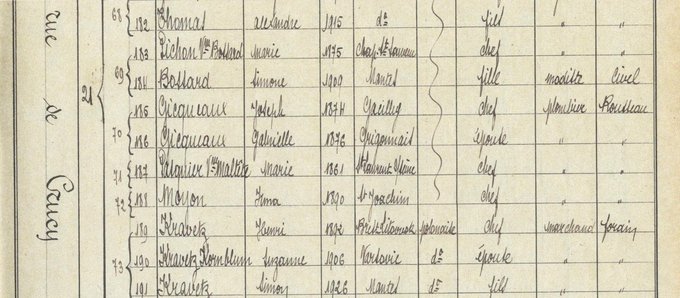 rue de Crucy
22
68 182 Thomas alexandre 1915 do fils " "
183 Pichon Vve Bossard Marie 1875 chef " "
69 184 Bossard Simone 1909 Nantes fille modiste
185 Gicqueaux Joseph 1874 chef plombier Rousseau
70 186 Gicqueaux Gabrielle 1876 Guigonnais épouse " "
71 187 Vve Marie 1861 St Laurent chef " "
72 188 Moyon Irma 1890 St Joachim chef " "
189 Kravetz Henri 1892 Brest Litowsk polonaise chef marchand forain
73 190 Kravetz Kornblum Suzanne 1906 Varsovie do épouse " "
191 Kravetz Simon 1926 Nantes do fils " "